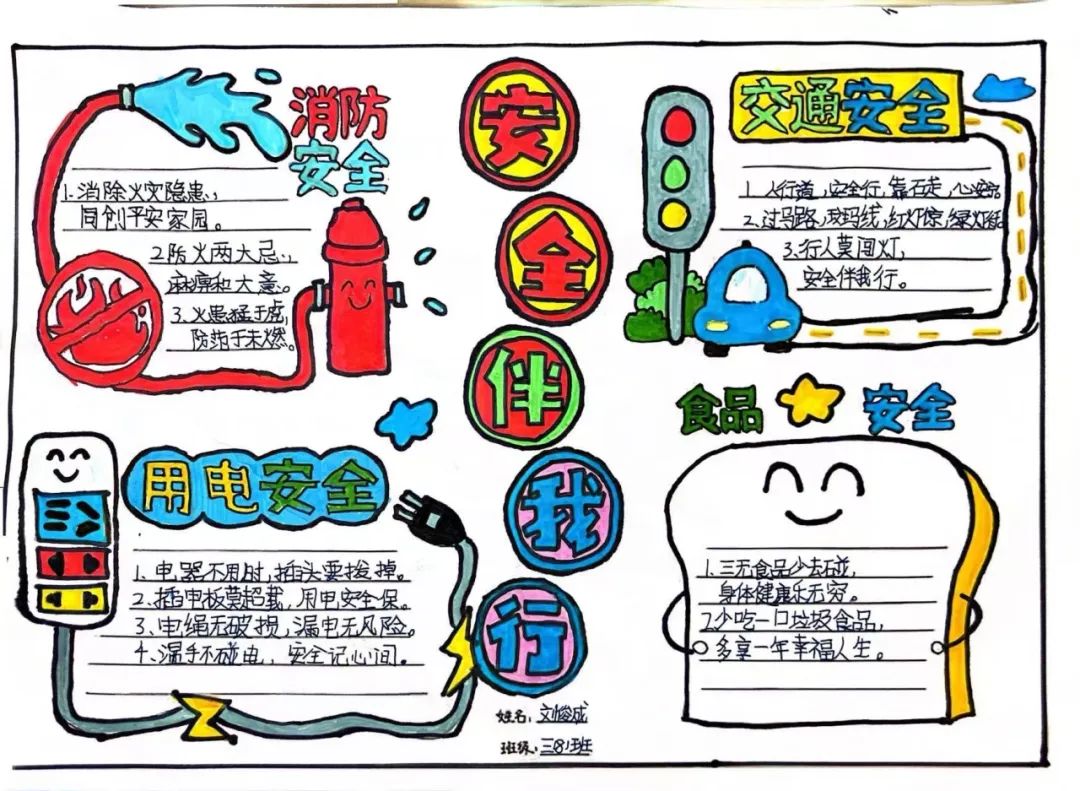 安全伴我行
消防
安全
1.消除火灾隐患,
同创平安家园。
2.防火两大忌,
麻痹和大意。
3.火患猛于虎,
防范于未燃。
交通安全
1.人行道,安全行,靠右走,心安
2.过马路,斑马线,红灯停,绿灯行
3.行人莫闯灯,
安全伴我行。
用电安全
1.电器不用时,插头要拔掉。
2.插电板莫超载,用电安全保。
3.电绳无破损,漏电无风险。
4.湿手不碰电,安全记心间。
食品 安全
1.三无食品少去碰,
身体健康乐无穷。
2.少吃一口垃圾食品,
多享一年幸福人生。
姓名:
班级: